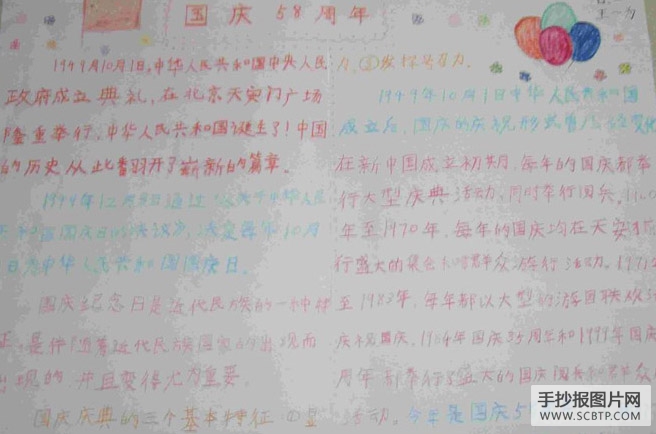 国庆58周年
王一为
1949年10月1日,中华人民共和国中央人民
政府成立典礼,在北京天安门广场
隆重举行,中华人民共和国诞生了!中国
的历史从此翻开了崭新的篇章。
1949年12月 日通过 中华人民
国庆日的决议, 决定每年10月
日为中华人民共和国国庆日。
国庆纪念日是近代民族的一种特
征,是伴随着近代民族国家的出现而
出现的 并且变得尤为重要。
国庆庆典的三个基本特征 ①显
力,
1949年10月1日中华人民共和国
成立后,国庆的庆祝形式曾几经变化
在新中国成立初期,每年的国庆都举
行大型庆典活动,同时举行阅兵,
年至1970年,每年的国庆均在天安
行盛大的集会和群众游行活动。1971
至1983年,每年都以大型的游园联欢活
庆祝国庆,1984年国庆35周年和1999年国庆
周年都举行了盛大的国庆阅兵和群众
活动。今年是国庆5
手抄报图片网
WWW.SCBTP.COM